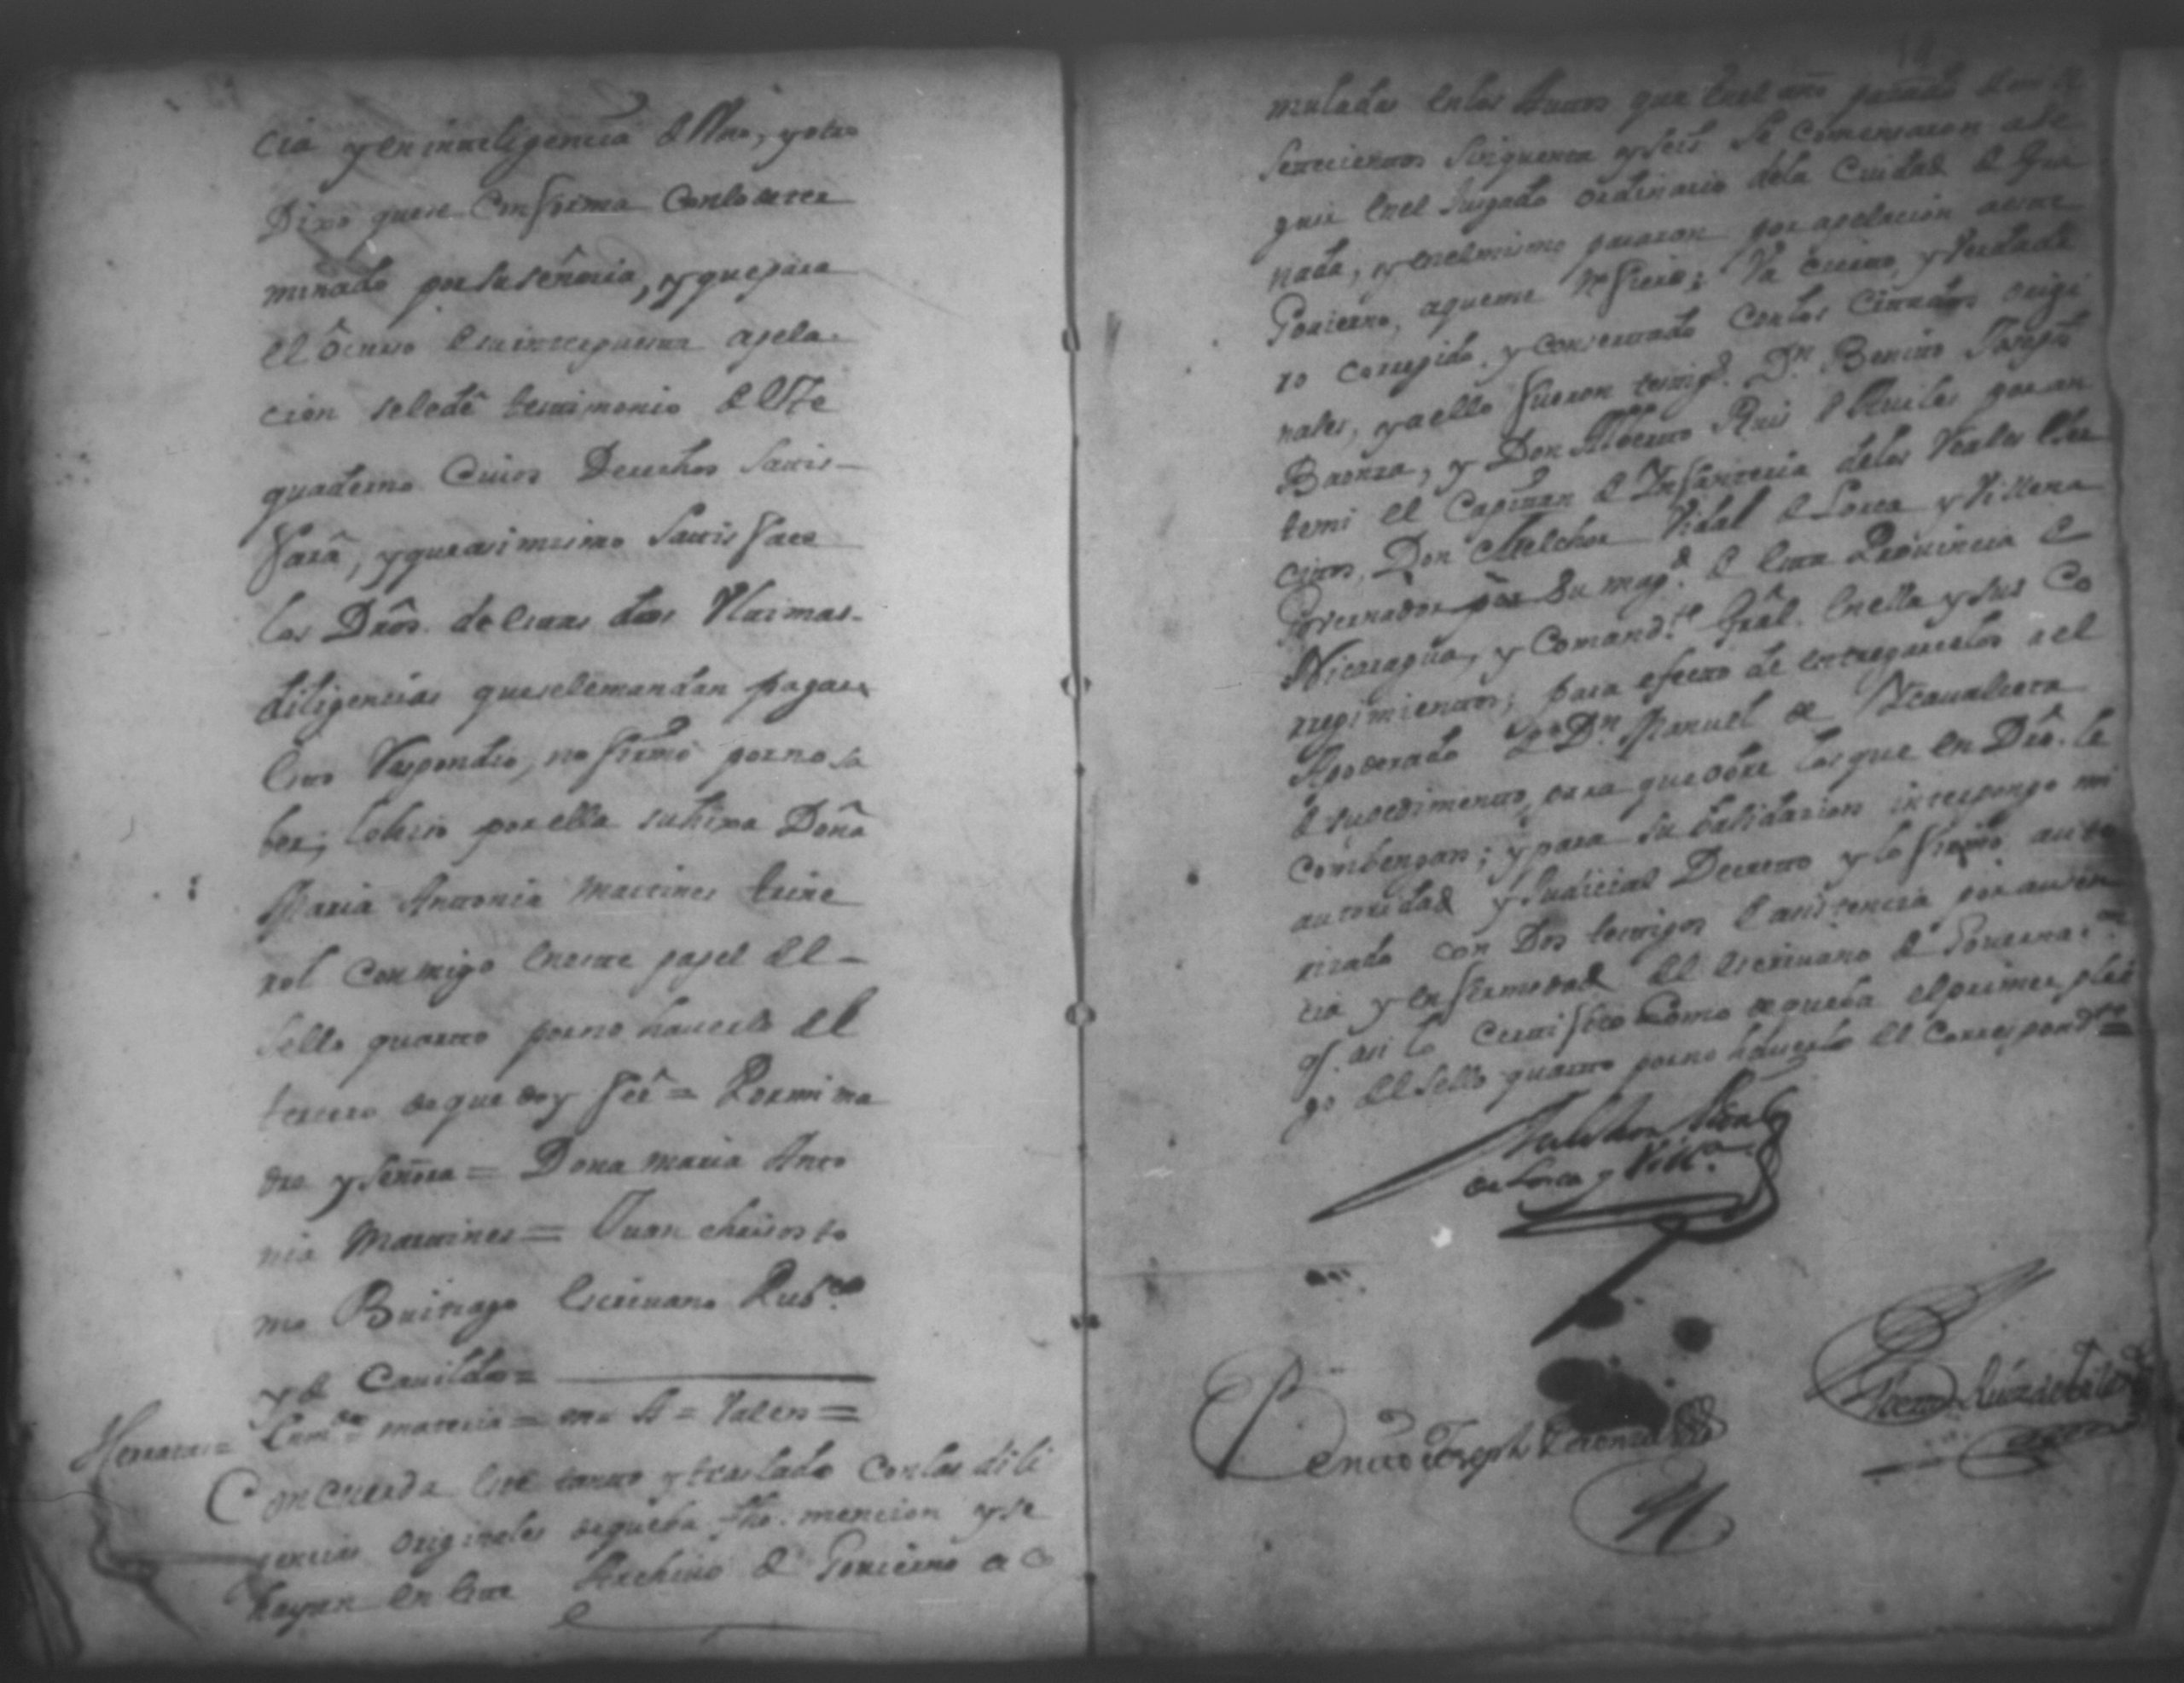 cia y en inteligencia de Uno, y otro
Dixo que se Conforma Con lo deter
minado por su señoria, y que para
el ôcurso de su interpuesta apela-
cion se le dê testimonio de Este
quaderno Cuios Derechos Satis-
fará, y que asi mismo Satisface
los Drôs. de estas dos Vltimas-
diligencias que se le mandan pagar
Esto Respondio, no firmó por no sa
ber; lo hizo por ella su hixa Doña
Maria Antonia Martines tuine
rol Conmigo en este papel del-
Sello quarto por no haverlo del
tercero de que doy feê = Por mi ma
dre y Señora = Dona Maria Anto
nia Martines = Juan chrisosto
mo Buitrago Escriuano Pubco
y de Cauildo=
Herrara= = materia = = Valen =
Concuerda este tanto y traslado Con las dili
gencias Originales de que ba fho. mencion y se
hayan en este Archivo de Govierno a co
14
mulados en los Autos que en el año pasado de
Setecientos Sinquenta y seis se Comensaron a se
guir en el Jusgado Ordinario de la Ciudad de Gra
nada, y en el mismo pasaron por apelacion a este
Govierno, a que me refiero; Va cierto, y Verdade
ro corregido y consertado Con los Citados Origi
nales, y a ello fueron testigs. Dn. Benito Joseph
Baonza, y Don Alberto Ruis de Aviles por an
temi el Capitan de Infanteria de los Reales Exer
citos, Don Melchor Vidal de Lorca y Villena
Governador por Su magd. de Esta Provincia de
Nicaragua, y Comandte. Gral. en ella y sus Co
rregimientos; para efecto de entregarselos a el
Apoderado de Dn. Manuel de
de su pedimento, para que obre los que en Dro. le
Combengan; y para su balidacion interpongo mi
autoridad y Judicial Decreto y lo firmo auto
rizado con Dos testigos de asistencia por ausen
cia y enfermedad del Escriuano de Governaon.
qe. asi lo Certifico Como de que ba el primer plie
go del Sello quarto por no haverlo del Correspondte=
Melchor Vidal
de Lorca y Villa.
Benito Joseph Baonza
Alberto Ruiz de Aviles